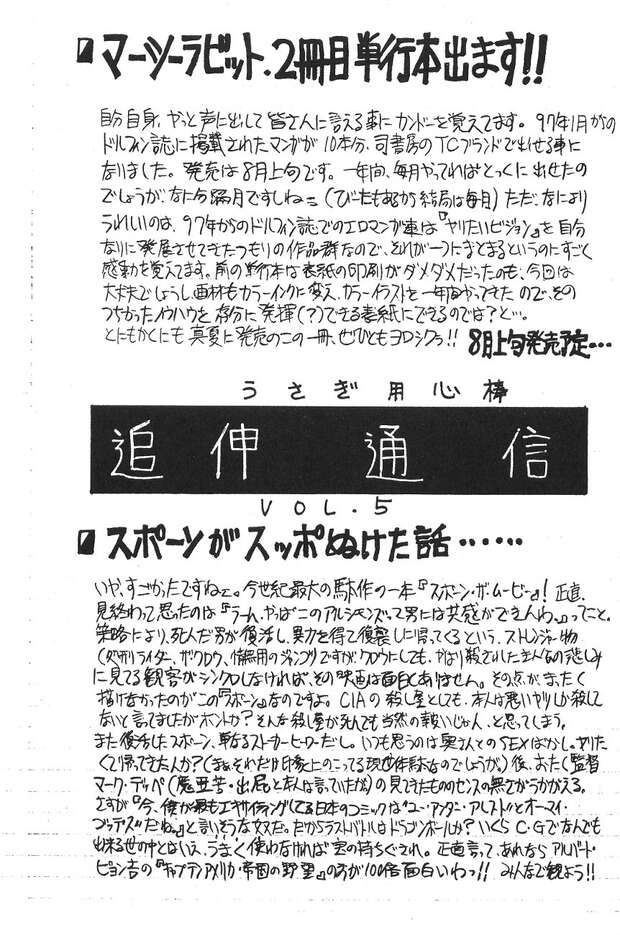 マーシーラビット.2冊目単行本出ます!!
自分自身、やっと声に出して皆さんに言える事にカンドーを覚えてます。97年1月からの
ドルフィン誌に掲載されたマンガが10本分、司書房のTCブランドで出せる事に
なりました。発売は8月上旬です。一年間、毎月やってればとっくに出せたの
でしょうが、なに分隔月ですしね (びたもあるから結局は毎月) ただ、なにより
うれしいのは、97年からのドルフィン誌でのエロマンガ車は『ヤリたいビジョン』を自分
なりに発展させてきたつもりの作品群なので、それが一つにまとまるというのにすごく
感動を覚えてます。前の単行本は表紙の印刷がダメダメだったのも、今回は
大丈夫でしょうし、画材もカラーインクに変え、カラーイラストを一年間やってきたので、その
つちかったノウハウを存分に発揮(?)できる表紙にできるのでは?と…。
とにもかくにも真夏に発売のこの一冊、ぜひともヨロシクぅ!! 8月上旬発売予定…
うさぎ用心棒
追伸通信
VOL.5
スポーンがスッポぬけた話……
いや、すごかったですねェ。今世紀最大の駄作の一本『スポーン・ザ・ムービー』! 正直、
見終わって思ったのは『うーム、やっぱこのアルシモンズって男には共感ができんわ。』ってこと。
策略により、死んだ男が復活し、異力を得て復讐しに帰ってくるという、ストレンジャー物
(処刑ライダー、ザクロウ、僧無用のジャンゴ)ですがクロウにしても、やはり殺された主人公の悲しみ
に見てる観客がシンクロしなければ、その映画は面白くありません。その点が、まったく
描けなかったのがこの『スポーン』なのですよ。CIAの殺し屋としても、本人は悪いヤツしか殺して
ないと言ってましたがホントか? そんな殺し屋が死んでも当然の報いじゃん、と思ってしまう。
また復活したスポーン、単なるストーカーヒーローだし。いつも思うのは奥さんとのSEXばかし。ヤリた
くて帰ってきたんか?(まぁそれだけ印象上のこってる現世年録なのでしょうが)後、おたく監督
マーク・デッペ(魔亜苦・出屁と友人は言っていたが)の見てきたもののセンスの無さがうかがえる。
さすが『今、僕が最もエキサイティングしてる日本のコミックは"ユー・アンダー・アレスト"とオーマイ・
ゴッデス"だね。』と言いそうな奴だ。だからラストバトルはドラゴンボールか? いくらC.Gでなんでも
出来る世の中とはいえ、うまく使わなければ宝の持ちぐされ。正直言って、あれなら アルバート・
ピョン吉の『キャプテンアメリカ・帝国の野望』の方が100倍面白いわっ!! みんなで観よう!!